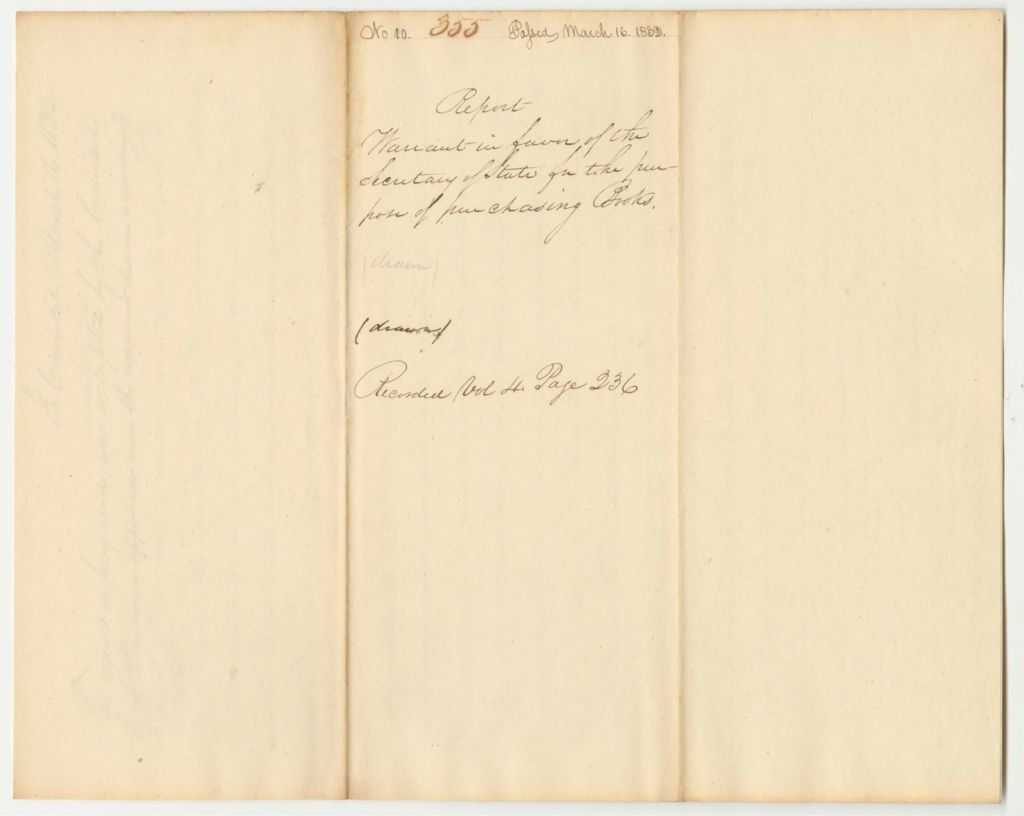 No 10. 355 Passed, March 16. 1832.
Report
Warrant in favor of the
Secretary of State for the pur-
pose of purchasing Books.
(drawn)
(drawn)
Recorded Vol 4. Page 236